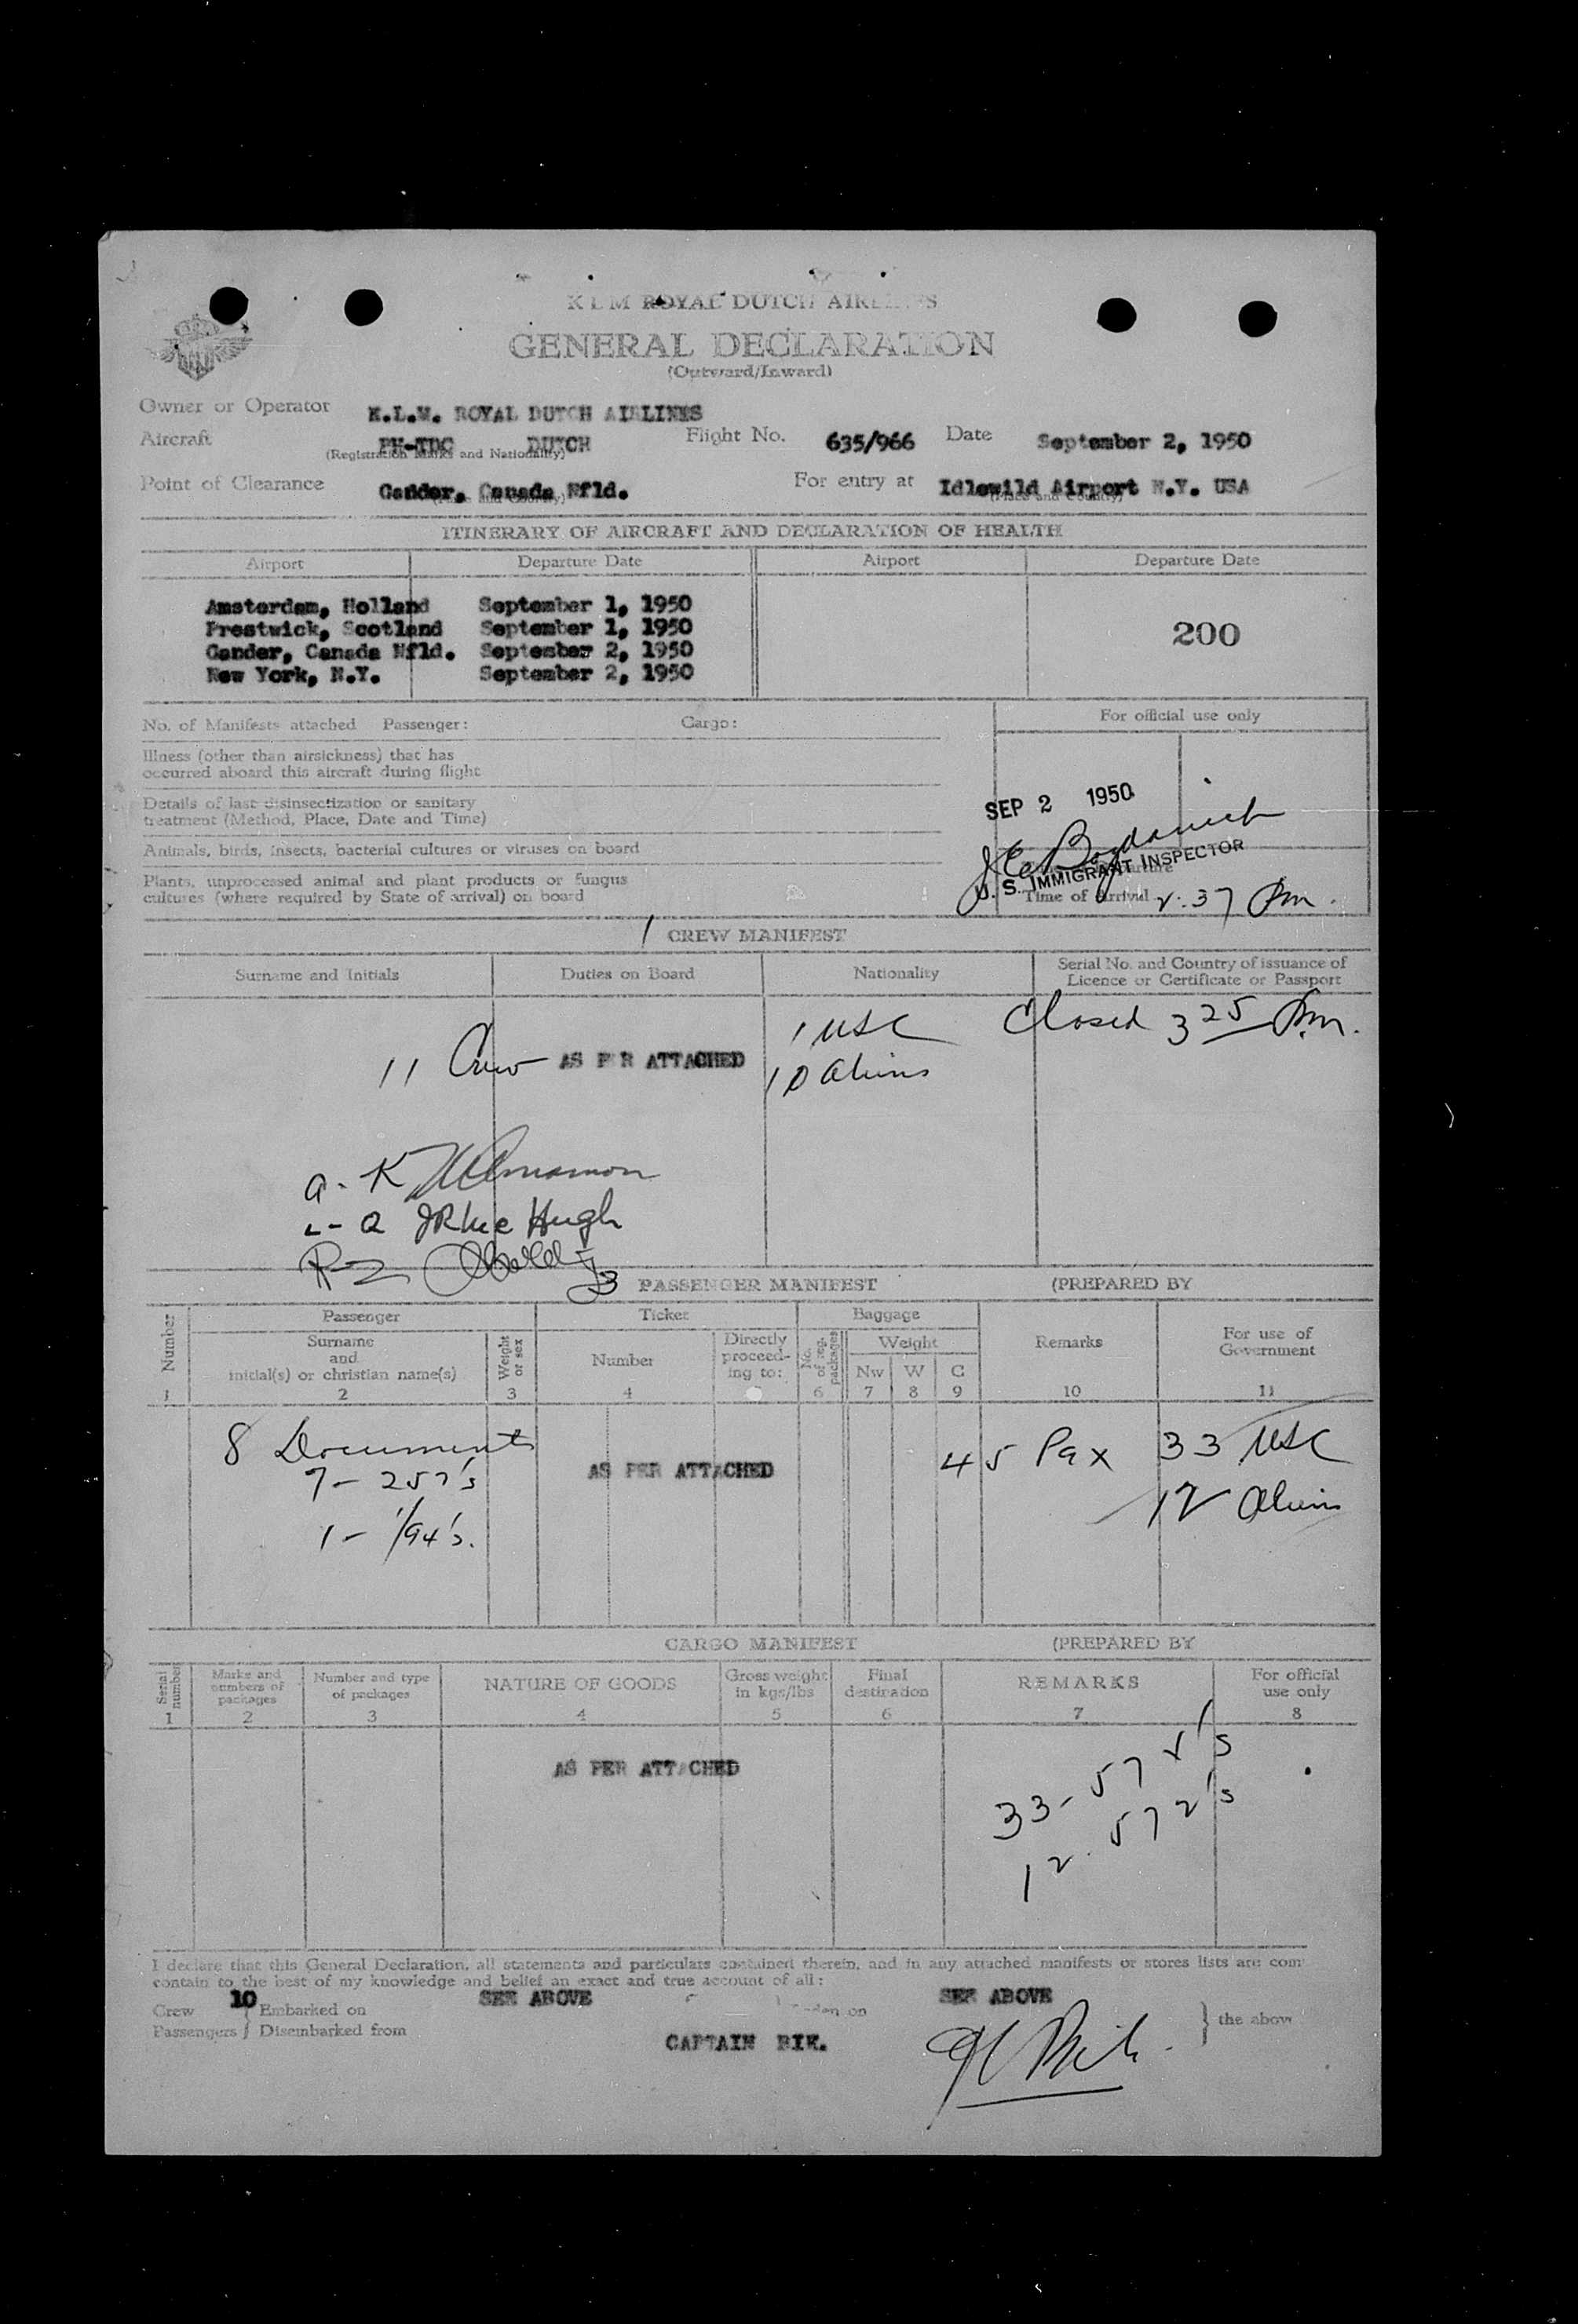 KLM ROYAL DUTCH AIRLINES
GENERAL DECLARATION
(Outward/Inward)
Owner or Operator K.L.M. ROYAL DUTCH AIRLINES
Aircraft PH-TDC DUTCH Flight No. 635/966 Date September 2, 1950
(Registration Marks and Nationality)
Point of Clearance Gander, Canada Nfld. For entry at Idlewild Airport N.Y. USA
(Place and Country)
ITINERARY OF AIRCRAFT AND DECLARATION OF HEALTH
Airport Departure Date Airport Departure Date
Amsterdam, Holland September 1, 1950
Prestwick, Scotland September 1, 1950
200
Gander, Canada Nfld. September 2, 1950
New York, N.Y. September 2, 1950
No. of Manifests attached Passenger: Cargo: For official use only
Illness (other than airsickness) that has
occurred aboard this aircraft during flight
Details of last disinsectization or sanitary
treatment (Method, Place, Date and Time)
SEP 2 1950
Animals, birds, insects, bacterial cultures or viruses on board
U. S. IMMIGRANT INSPECTOR
Plants, unprocessed animal and plant products or fungus
cultures (where required by State of arrival) on board
Time of Arrival 2:37 Pm.
CREW MANIFEST
Surname and Initials Duties on Board Nationality Serial No. and Country of issuance of
Licence or Certificate or Passport
1 USC Closed 3 25 Pm.
11 Crew AS PER ATTACHED 10 aliens
PASSENGER MANIFEST (PREPARED BY
Number Passenger Ticket Baggage Remarks For use of
Government
Surname
and
initial(s) or christian name(s)
Weight or sex Number Directly
proceed-
ing to:
No. of reg. packages Weight
Nw W C
1 2 3 4 6 7 8 9 10 11
8 Documents AS PER ATTACHED 45 Pax 33 USC
7 - 257's 12 Aliens
1 - I/94's.
CARGO MANIFEST (PREPARED BY
Serial number Marks and
numbers of
packages
Number and type
of packages
NATURE OF GOODS Gross weight
in kgs/lbs
Final
destination
REMARKS For official
use only
1 2 3 4 5 6 7 8
AS PER ATTACHED
33 - 572's
12. 572's
I declare that this General Declaration, all statements and particulars contained therein, and in any attached manifests or stores lists are com
contain to the best of my knowledge and belief an exact and true account of all:
Crew 10 Embarked on SEE ABOVE SEE ABOVE
Passengers Disembarked from the above
CAPTAIN BIK.